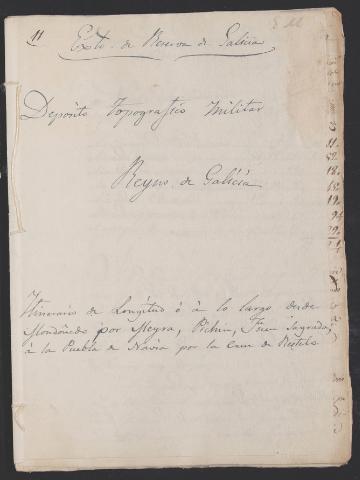 11
Exto. de Reserva de Galicia
Deposito Topografico Militar
Reyno de Galicia
Itinerario de Longitud ó à lo largo desde
Mondoñedo por Meyra, Fuen Sagrada,
à la Puebla de Navia por la Cruz de Restelo